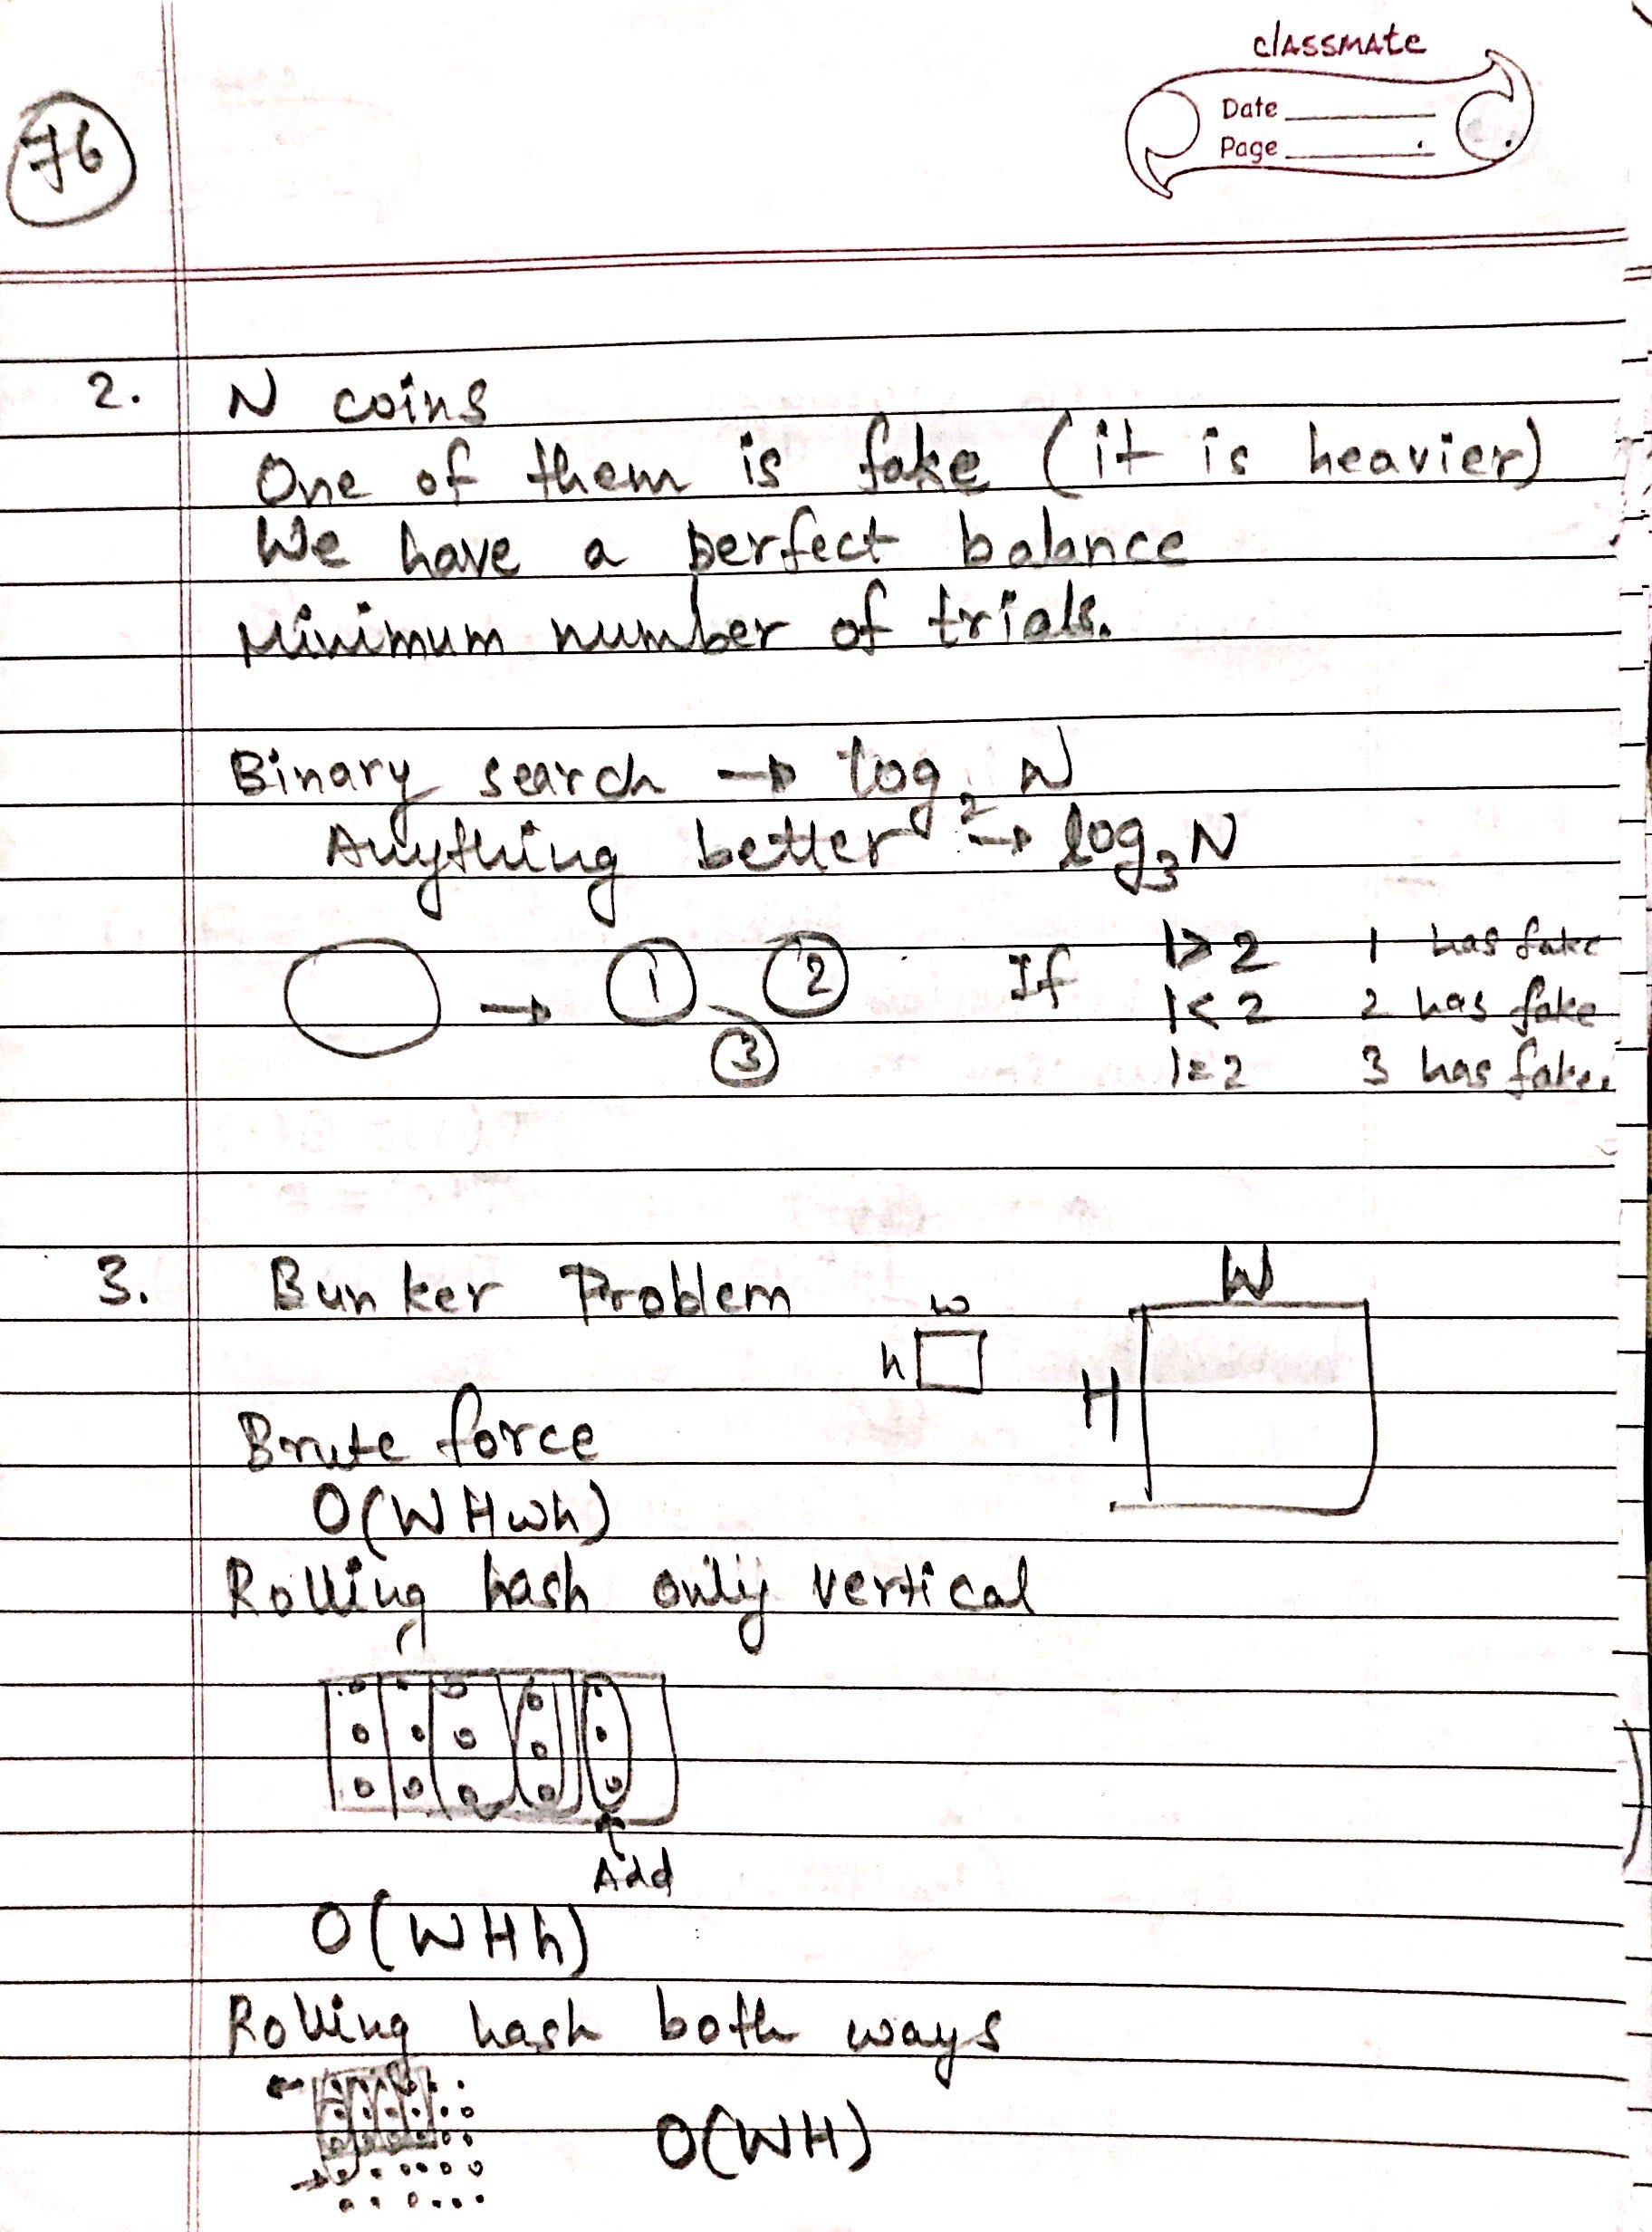 classmate
Date
Page
76
2. N coins
One of them is fake (it is heavier)
We have a perfect balance
Minimum number of trials.
Binary search → log₂ N
Anything better → log₃ N
→ 1 2 If 1>2 1 has fake
1<2 2 has fake
3 1=2 3 has fake.
3. Bunker Problem w W
h H
Brute force
O(WHwh)
Rolling hash only vertical
Add
O(WHh)
Rolling hash both ways
O(WH)